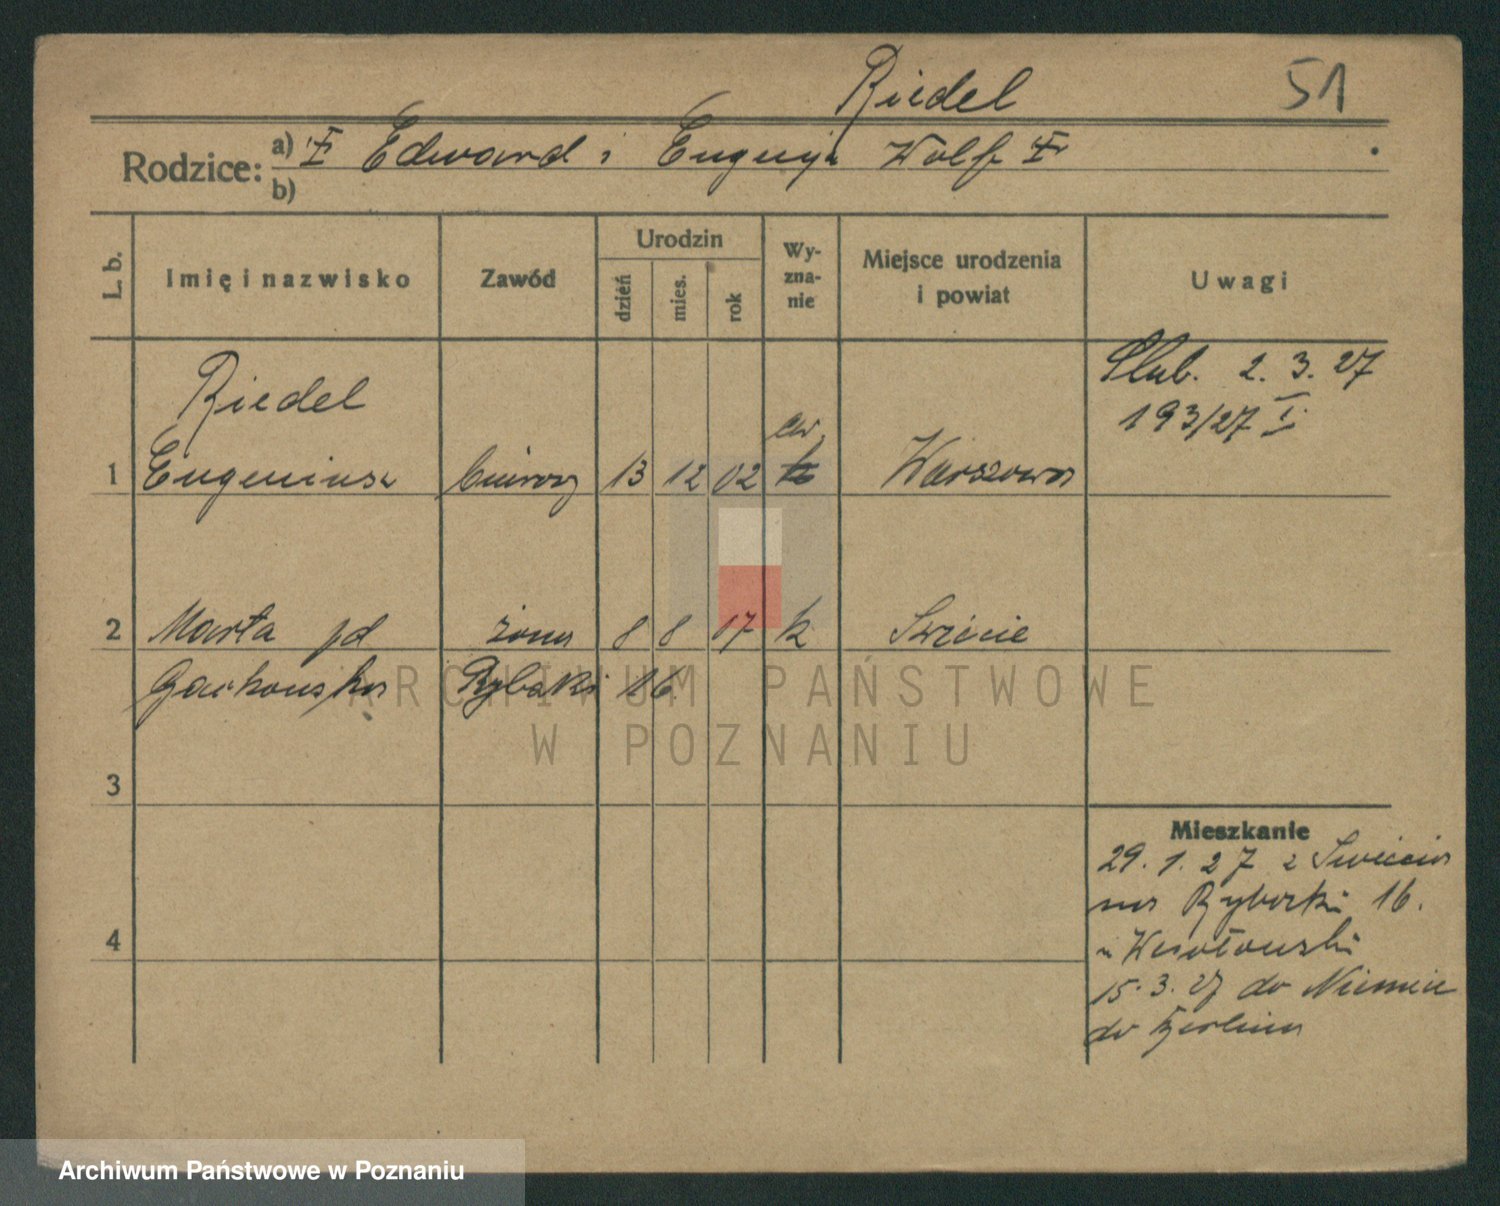 Riedel 51
Rodzice: a) I Edward i Eugenja Wolf I
b)
L. b. Imię i nazwisko Zawód Urodzin dzień mies. rok Wy-zna-nie Miejsce urodzenia i powiat Uwagi
Ślub. 2. 3. 27
193/27 I
Riedel
ew.
1 Eugeniusz biurowy 13 12 02 k Warszawa
2 Marta żona 8 8 07 k Świecie
Rybaki 16
3
4
Mieszkanie
29. 1. 27 z Świecia
na Rybaki 16.
u Wesołowski
15. 3. 27 do Niemiec
do Berlina
ARCHIWUM PAŃSTWOWE
W POZNANIU
Archiwum Państwowe w Poznaniu